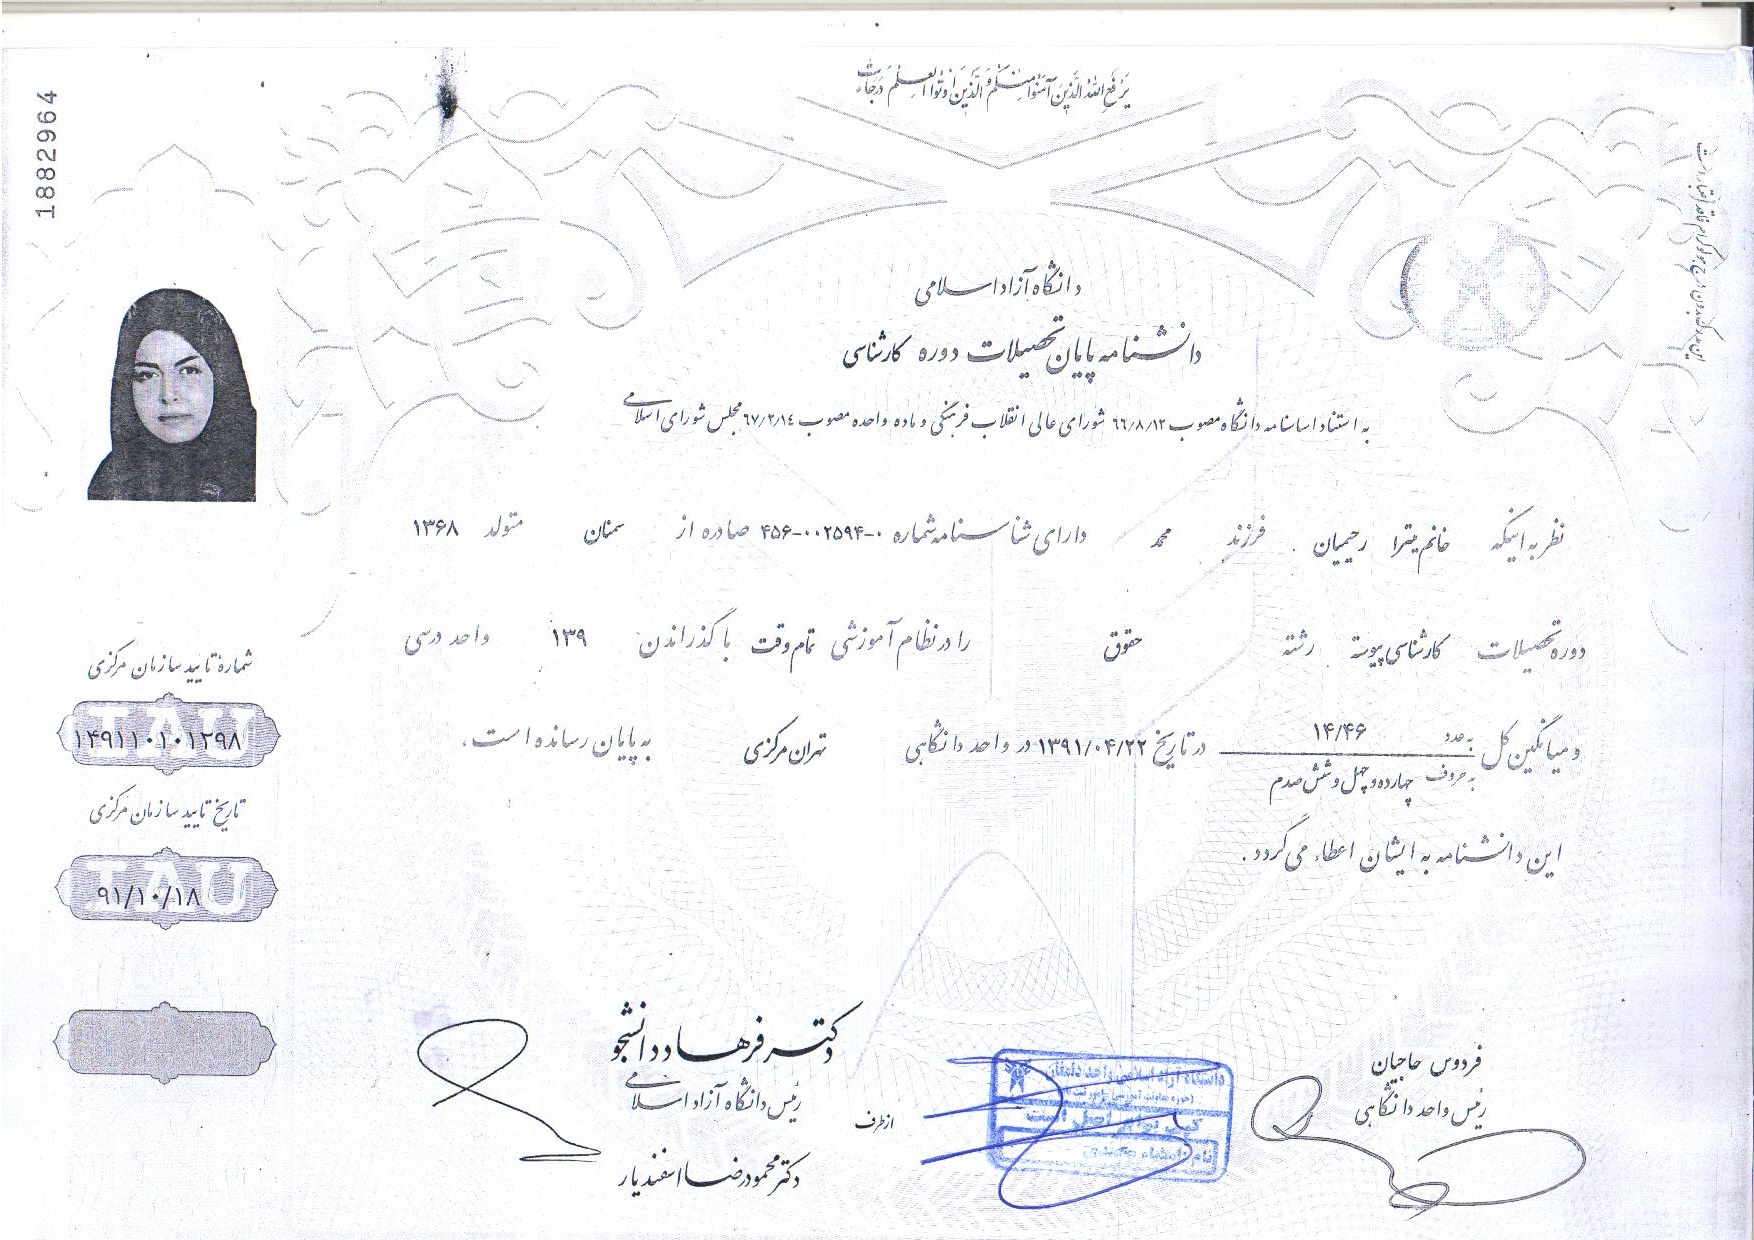 یرفع الله الذین آمنوا منکم والذین اوتوا العلم درجات
1882964
این مدرک بدون درج هولوگرام فاقد اعتبار است
دانشگاه آزاد اسلامی
دانشنامه پایان تحصیلات دوره کارشناسی
به استناد اساسنامه دانشگاه مصوب ۶۶/۸/۱۲ شورای عالی انقلاب فرهنگی و ماده واحده مصوب ۶۷/۲/۱۴ مجلس شورای اسلامی
نظر به اینکه خانم میترا رحیمیان فرزند محمد دارای شناسنامه شماره ۰-۰۰۲۵۹۴-۴۵۶ صادره از سمنان متولد ۱۳۶۸
دوره تحصیلات کارشناسی پیوسته رشته حقوق را در نظام آموزشی تمام وقت با گذراندن ۱۳۹ واحد درسی
و میانگین کل به عدد ۱۴/۴۶ در تاریخ ۱۳۹۱/۰۴/۲۲ در واحد دانشگاهی تهران مرکزی به پایان رسانده است.
به حروف چهارده و چهل و شش صدم
این دانشنامه به ایشان اعطاء می گردد.
شماره تایید سازمان مرکزی
۱۴۹۱۱۰۱۰۱۲۹۸
تاریخ تایید سازمان مرکزی
۹۱/۱۰/۱۸
فردوس حاجیان
رئیس واحد دانشگاهی
دکتر فرهاد دانشجو
رئیس دانشگاه آزاد اسلامی
از طرف
دکتر محمودرضا اسفندیار
کپی برابر اصل است